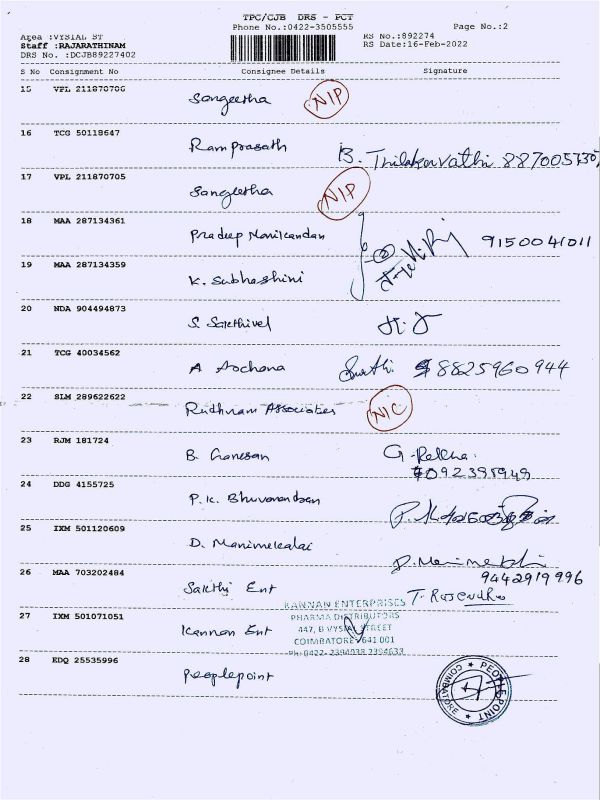 TPC/CJB DRS - PCT
Phone No.:0422-3505555 Page No.:2
Area :VYSIAL ST RS No.:892274
Staff :RAJARATHINAM RS Date:16-Feb-2022
DRS No. :DCJB89227402
S No Consignment No Consignee Details Signature
15 VPL 211870706 Sangeetha NIP
16 TCG 50118647 Ramprasath B. Thilakavathi
17 VPL 211870705 Sangeetha NIP
18 MAA 287134361 Pradeep Manikandan 9150041011
19 MAA 287134359 K. Subhashini
20 NDA 904494873 S. Sakthivel
21 TCG 40034562 A Archana 8825960944
22 SLM 289622622 Rudhram Associates NIC
23 RJM 181724 B. Ganesan G. Rekha
24 DDG 4155725 P.K. Bhuvanandan
25 IXM 501120609 D. Manimekalai D. Manimekalai
9442919996
26 MAA 703202484 Sakthi Ent T. Rajendra
KANNAN ENTERPRISES
27 IXM 501071051 Kannan Ent PHARMA DISTRIBUTORS
447, B VYSIAL STREET
COIMBATORE - 641 001
Ph: 0422- 2394038 2394633
28 EDQ 25535996 Peoplepoint
PEOPLE POINT
COIMBATORE